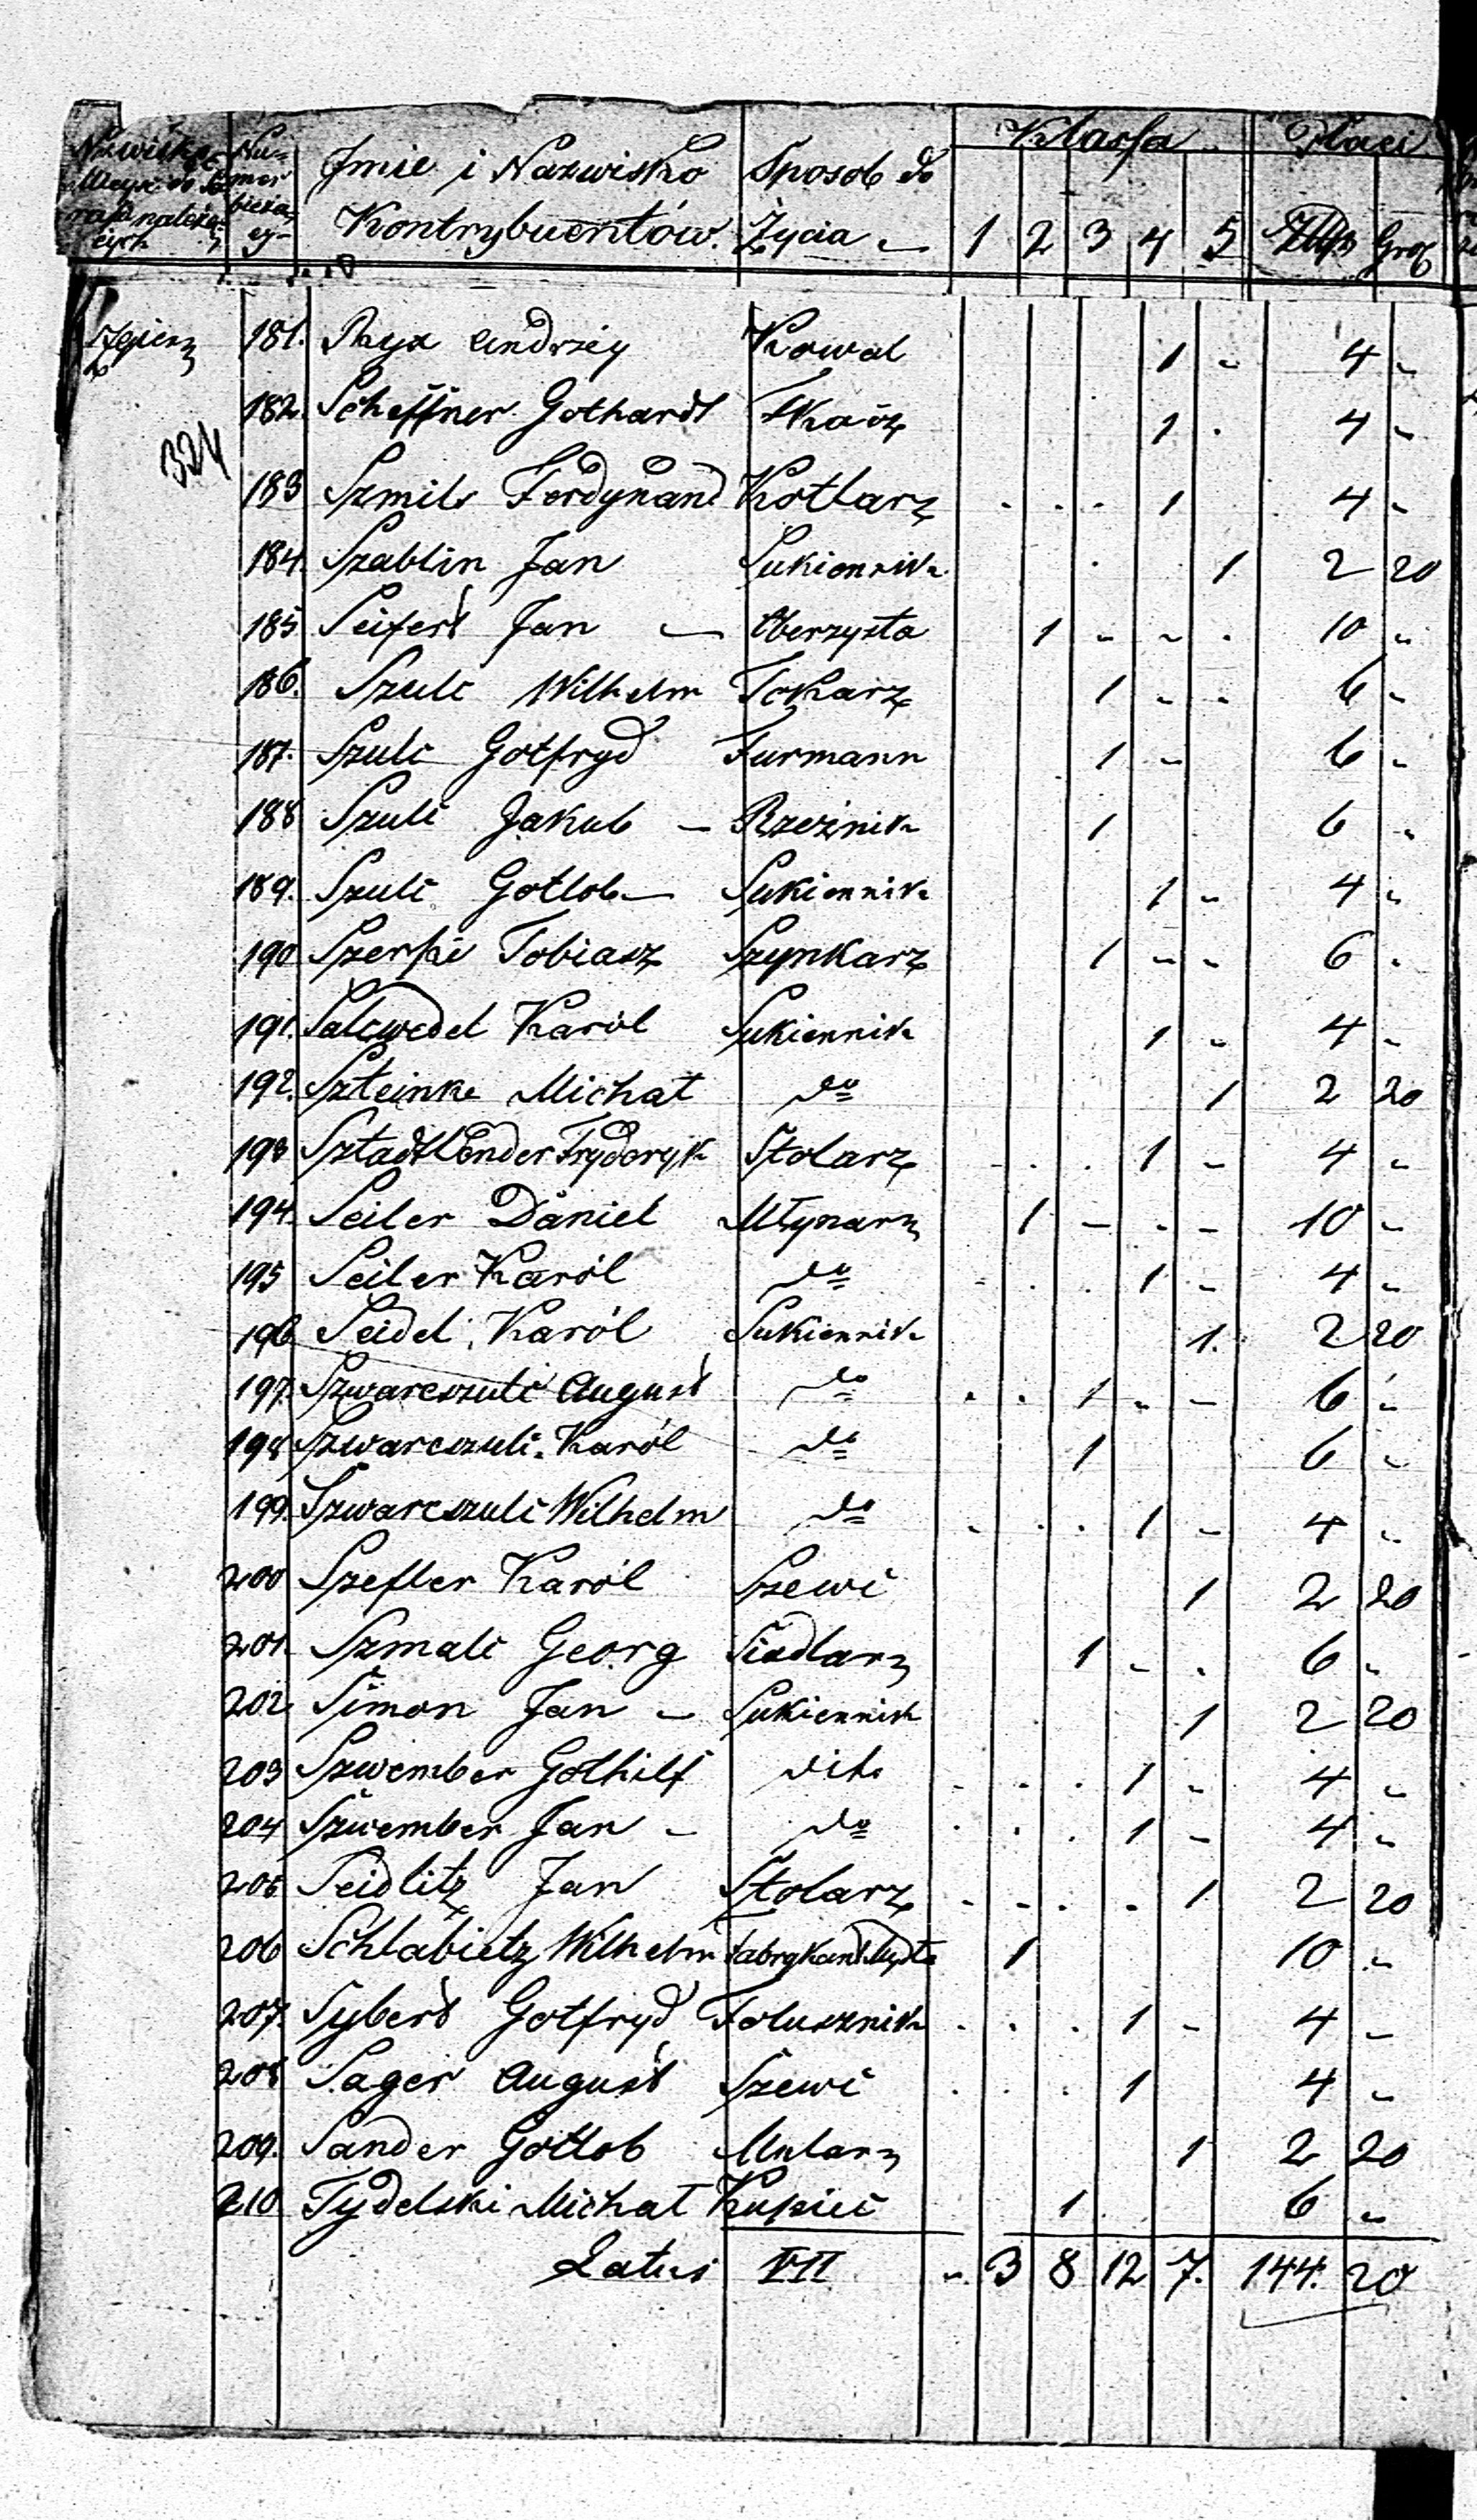 Nu=
mer
bieżą=
cy
Imie i Nazwisko
Kontrybuentów.
Sposob do
Życia
Klassa
1 2 3 4 5
Płaci
Złłp Gros
Zgierz
324
181. Ryx Andrzey Kowal 1 - 4 -
182. Scheffner Gothardt Tkacz 1 . 4 -
183 Szmils Ferdynand Kotlarz . . . 1 4 -
184. Szablin Jan Sukiennik 1 2 20
185 Seifert Jan — Oberzysta 1 - - . 10 -
186. Szulc Wilhelm Tokarz 1 - - 6 -
187. Szulc Gotfryd Furmann 1 - 6 -
188 Szulc Jakub — Rzeźnik 1 6 -
189. Szulc Gotlob — Sukiennik 1 - 4 -
190 Szerpe Tobiasz Szynkarz 1 - - 6 .
191. Salcwedel Karól Sukiennik 1 - 4 -
192. Szteinke Michał do 1 2 20
193 Sztadtlender Fryderyk Stolarz . . . 1 - 4 -
194. Seiler Daniel Młynarz 1 - - - 10 -
195 Seiler Karól do . . . 1 - 4 -
196 Seidel Karól Sukiennik 1. 2 20
197. Szwarcszulc August do . . 1 - - 6 -
198 Szwarcszulc Karól do 1 6 -
199. Szwarcszulc Wilhelm do . . . 1 - 4 -
200 Szefler Karól Szewc 1 2 20
201. Szmalc Georg Siodlarz 1 - . 6 -
202 Simon Jan — Sukiennik 1 2 20
203 Szwember Gothilf dito . . . 1 - 4 -
204 Szwember Jan - do . . . 1 - 4 -
205 Seidlitz Jan Stolarz . . . . 1 2 20
206 Schlabietz Wilhelm Fabrykant Mydła 1 10 -
207. Sybert Gotfryd Folusznik . . . 1 - 4 -
208 Sager August Szewc . . . 1 4 -
209. Sander Gotlob Mularz 1 2 20
210 Tydelski Michał Kupiec 1 6 -
Latus VII - 3 8 12 7. 144. 20